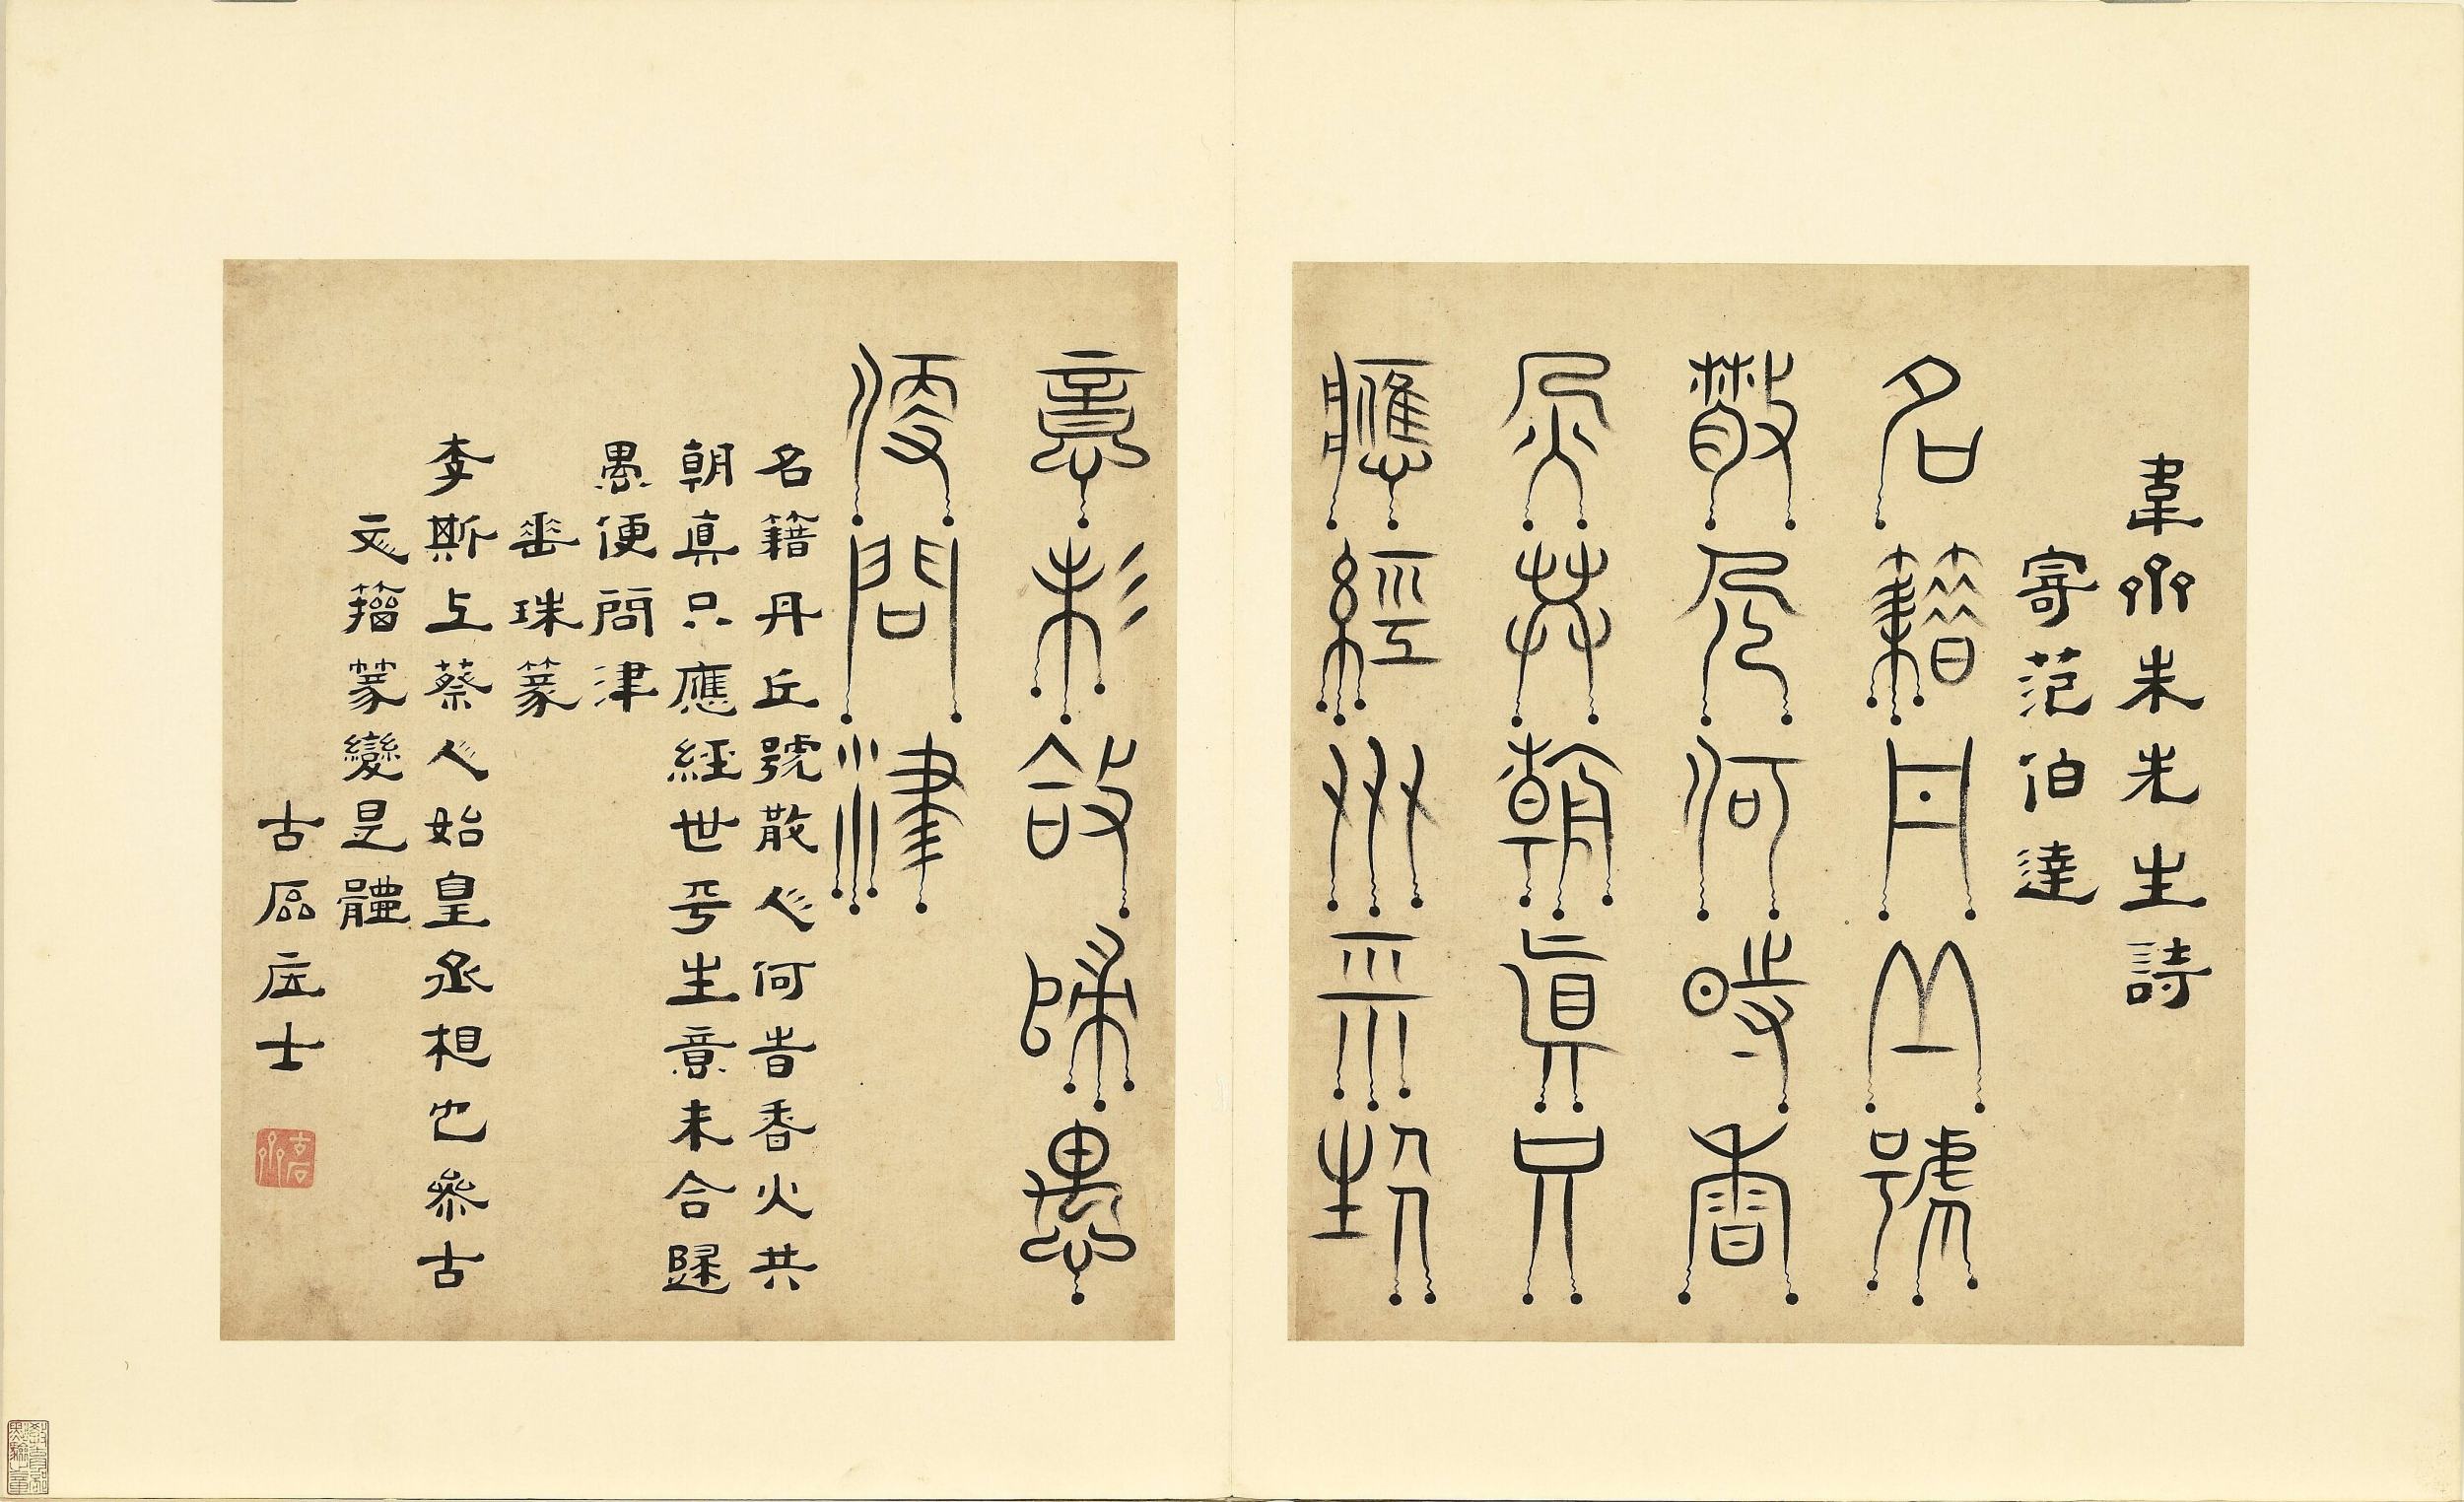 韋齋朱先生詩
寄范伯達
名籍丹丘號
散人何時香
火共朝真只
應經世平生
意未合歸愚
便問津
名籍丹丘號散人何旹香火共
朝真只應經世平生意未合歸
愚便問津
垂珠篆
李斯上蔡人始皇丞相也參古
文籀篆變是體
古石居士
古石齋
教育部點驗之章